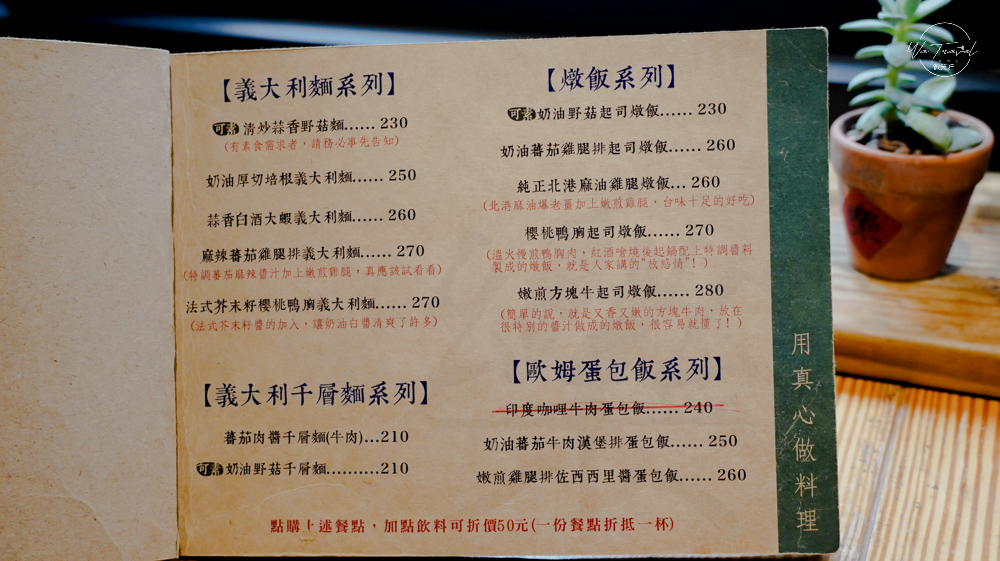 【義大利麵系列】
可素 清炒蒜香野菇麵...... 230
(有素食需求者，請務必事先告知)
奶油厚切培根義大利麵...... 250
蒜香白酒大蝦義大利麵...... 260
麻辣蕃茄雞腿排義大利麵...... 270
(特調蕃茄麻辣醬汁加上嫩煎雞腿，真應該試看看)
法式芥末籽櫻桃鴨胸義大利麵...... 270
(法式芥末籽醬的加入，讓奶油白醬清爽了許多)
【義大利千層麵系列】
蕃茄肉醬千層麵(牛肉)...210
可素 奶油野菇千層麵..........210
【燉飯系列】
可素 奶油野菇起司燉飯...... 230
奶油蕃茄雞腿排起司燉飯...... 260
純正北港麻油雞腿燉飯... 260
(北港麻油爆老薑加上嫩煎雞腿，台味十足的好吃)
櫻桃鴨胸起司燉飯...... 270
(溫火慢煎鴨胸肉，紅酒嗆燒後起鍋配上特調醬料
製成的燉飯，就是人家講的"放感情"！)
嫩煎方塊牛起司燉飯...... 280
(簡單的說，就是又香又嫩的方塊牛肉，放在
很特別的醬汁做成的燉飯，很容易就懂了！)
【歐姆蛋包飯系列】
印度咖哩牛肉蛋包飯...... 240
奶油蕃茄牛肉漢堡排蛋包飯...... 250
嫩煎雞腿排佐西西里醬蛋包飯...... 260
點購上述餐點，加點飲料可折價50元(一份餐點折抵一杯)
用真心做料理
Wa Travel